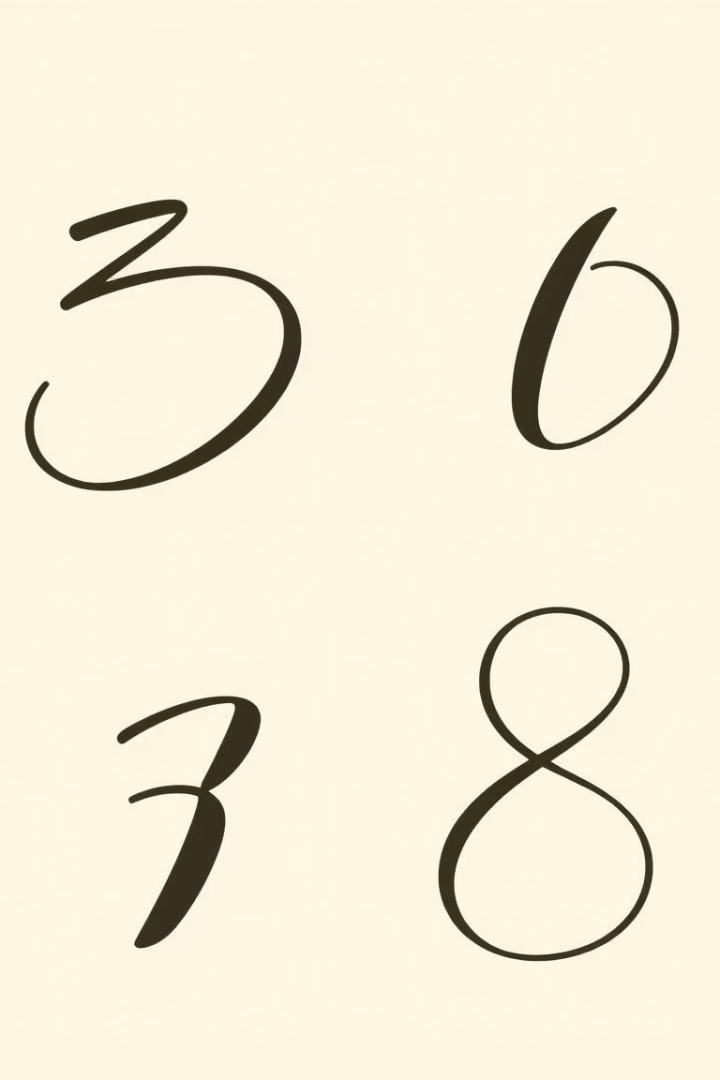 3 6
7 8